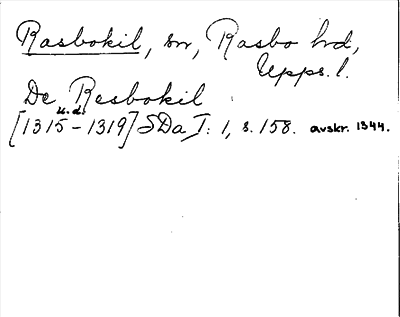 Rasbokil, sn, Rasbo hrd,
Upps. l.
De Resbokil
u.d.
[1315-1319] SDa I: 1, s. 158. avskr. 1344.